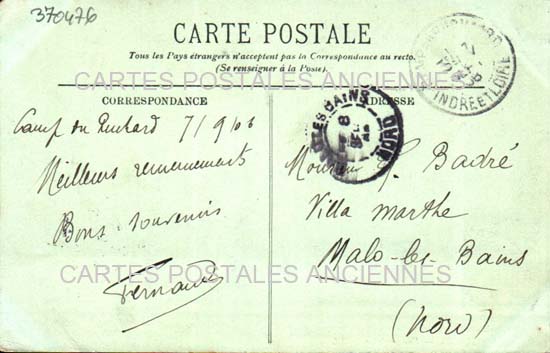 370476
CARTE POSTALE
Tous les Pays étrangers n'acceptent pas la Correspondance au recto.
(Se renseigner à la Poste)
CARTES POSTALES ANCIENNES
CORRESPONDANCE
ADRESSE
INDRE ET LOIRE
LES BAINS
NORD
Camp du Ruchard 7/9/06
Meilleurs remerciements
Bons souvenirs
Fernand
Monsieur G. Badré
Villa Marthe
Malo-les-Bains
(Nord)
CARTES POSTALES ANCIENNES